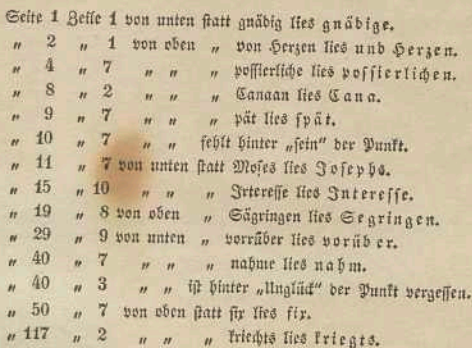 Seite 1 Zeile 1 von unten statt gnädig lies gnädige.
" 2 " 1 von oben " von Herzen lies und Herzen.
" 4 " 7 " " " possierliche lies possierlichen.
" 8 " 2 " " " Canaan lies Cana.
" 9 " 7 " " " pät lies spät.
" 10 " 7 " " fehlt hinter „sein" der Punkt.
" 11 " 7 von unten statt Moses lies Josephs.
" 15 " 10 " " " Irteresse lies Interesse.
" 19 " 8 von oben " Sägringen lies Segringen.
" 29 " 9 von unten " vorrüber lies vorüber.
" 40 " 7 " " " nahme lies nahm.
" 40 " 3 " " ist hinter „Unglück" der Punkt vergessen.
" 50 " 7 von oben statt six lies fix.
" 117 " 2 " " " kriechts lies kriegts.